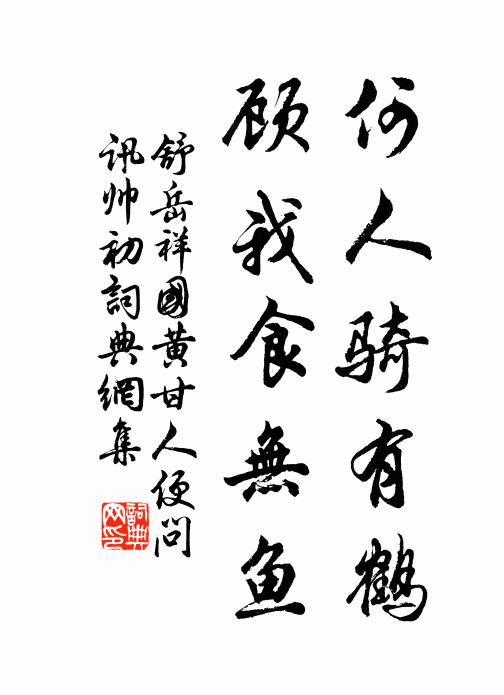 何人骑有鶴
顾我食無鱼
舒岳祥國黄甘人便問
讯帅初詞典網集
詞典网印